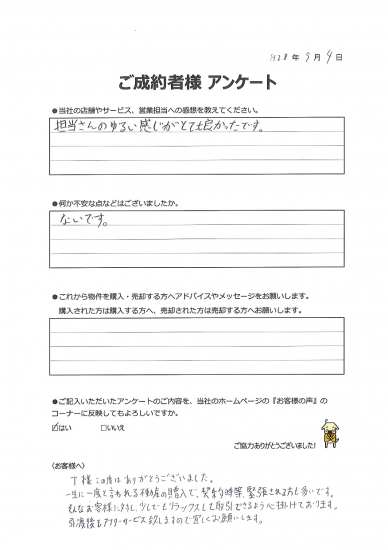 H28年9月4日
ご成約者様 アンケート
●当社の店舗やサービス、営業担当への感想を教えてください。
担当さんのゆるい感じがとても良かったです。
●何か不安な点などはございましたか。
ないです。
●これから物件を購入・売却する方へアドバイスやメッセージをお願いします。
購入された方は購入する方へ、売却された方は売却する方へお願いします。
●ご記入いただいたアンケートのご内容を、当社のホームページの『お客様の声』の
コーナーに反映してもよろしいですか。
☑はい □いいえ
ご協力ありがとうございました!
〈お客様へ〉
T様 この度はありがとうございました。
一生に一度と言われる不動産の購入で、契約時等、緊張される方も多いです。
そんなお客様に対し、少しでもリラックスして取引できるよう心掛けております。
引渡後もアフターサービス致しますので宜しくお願いします。